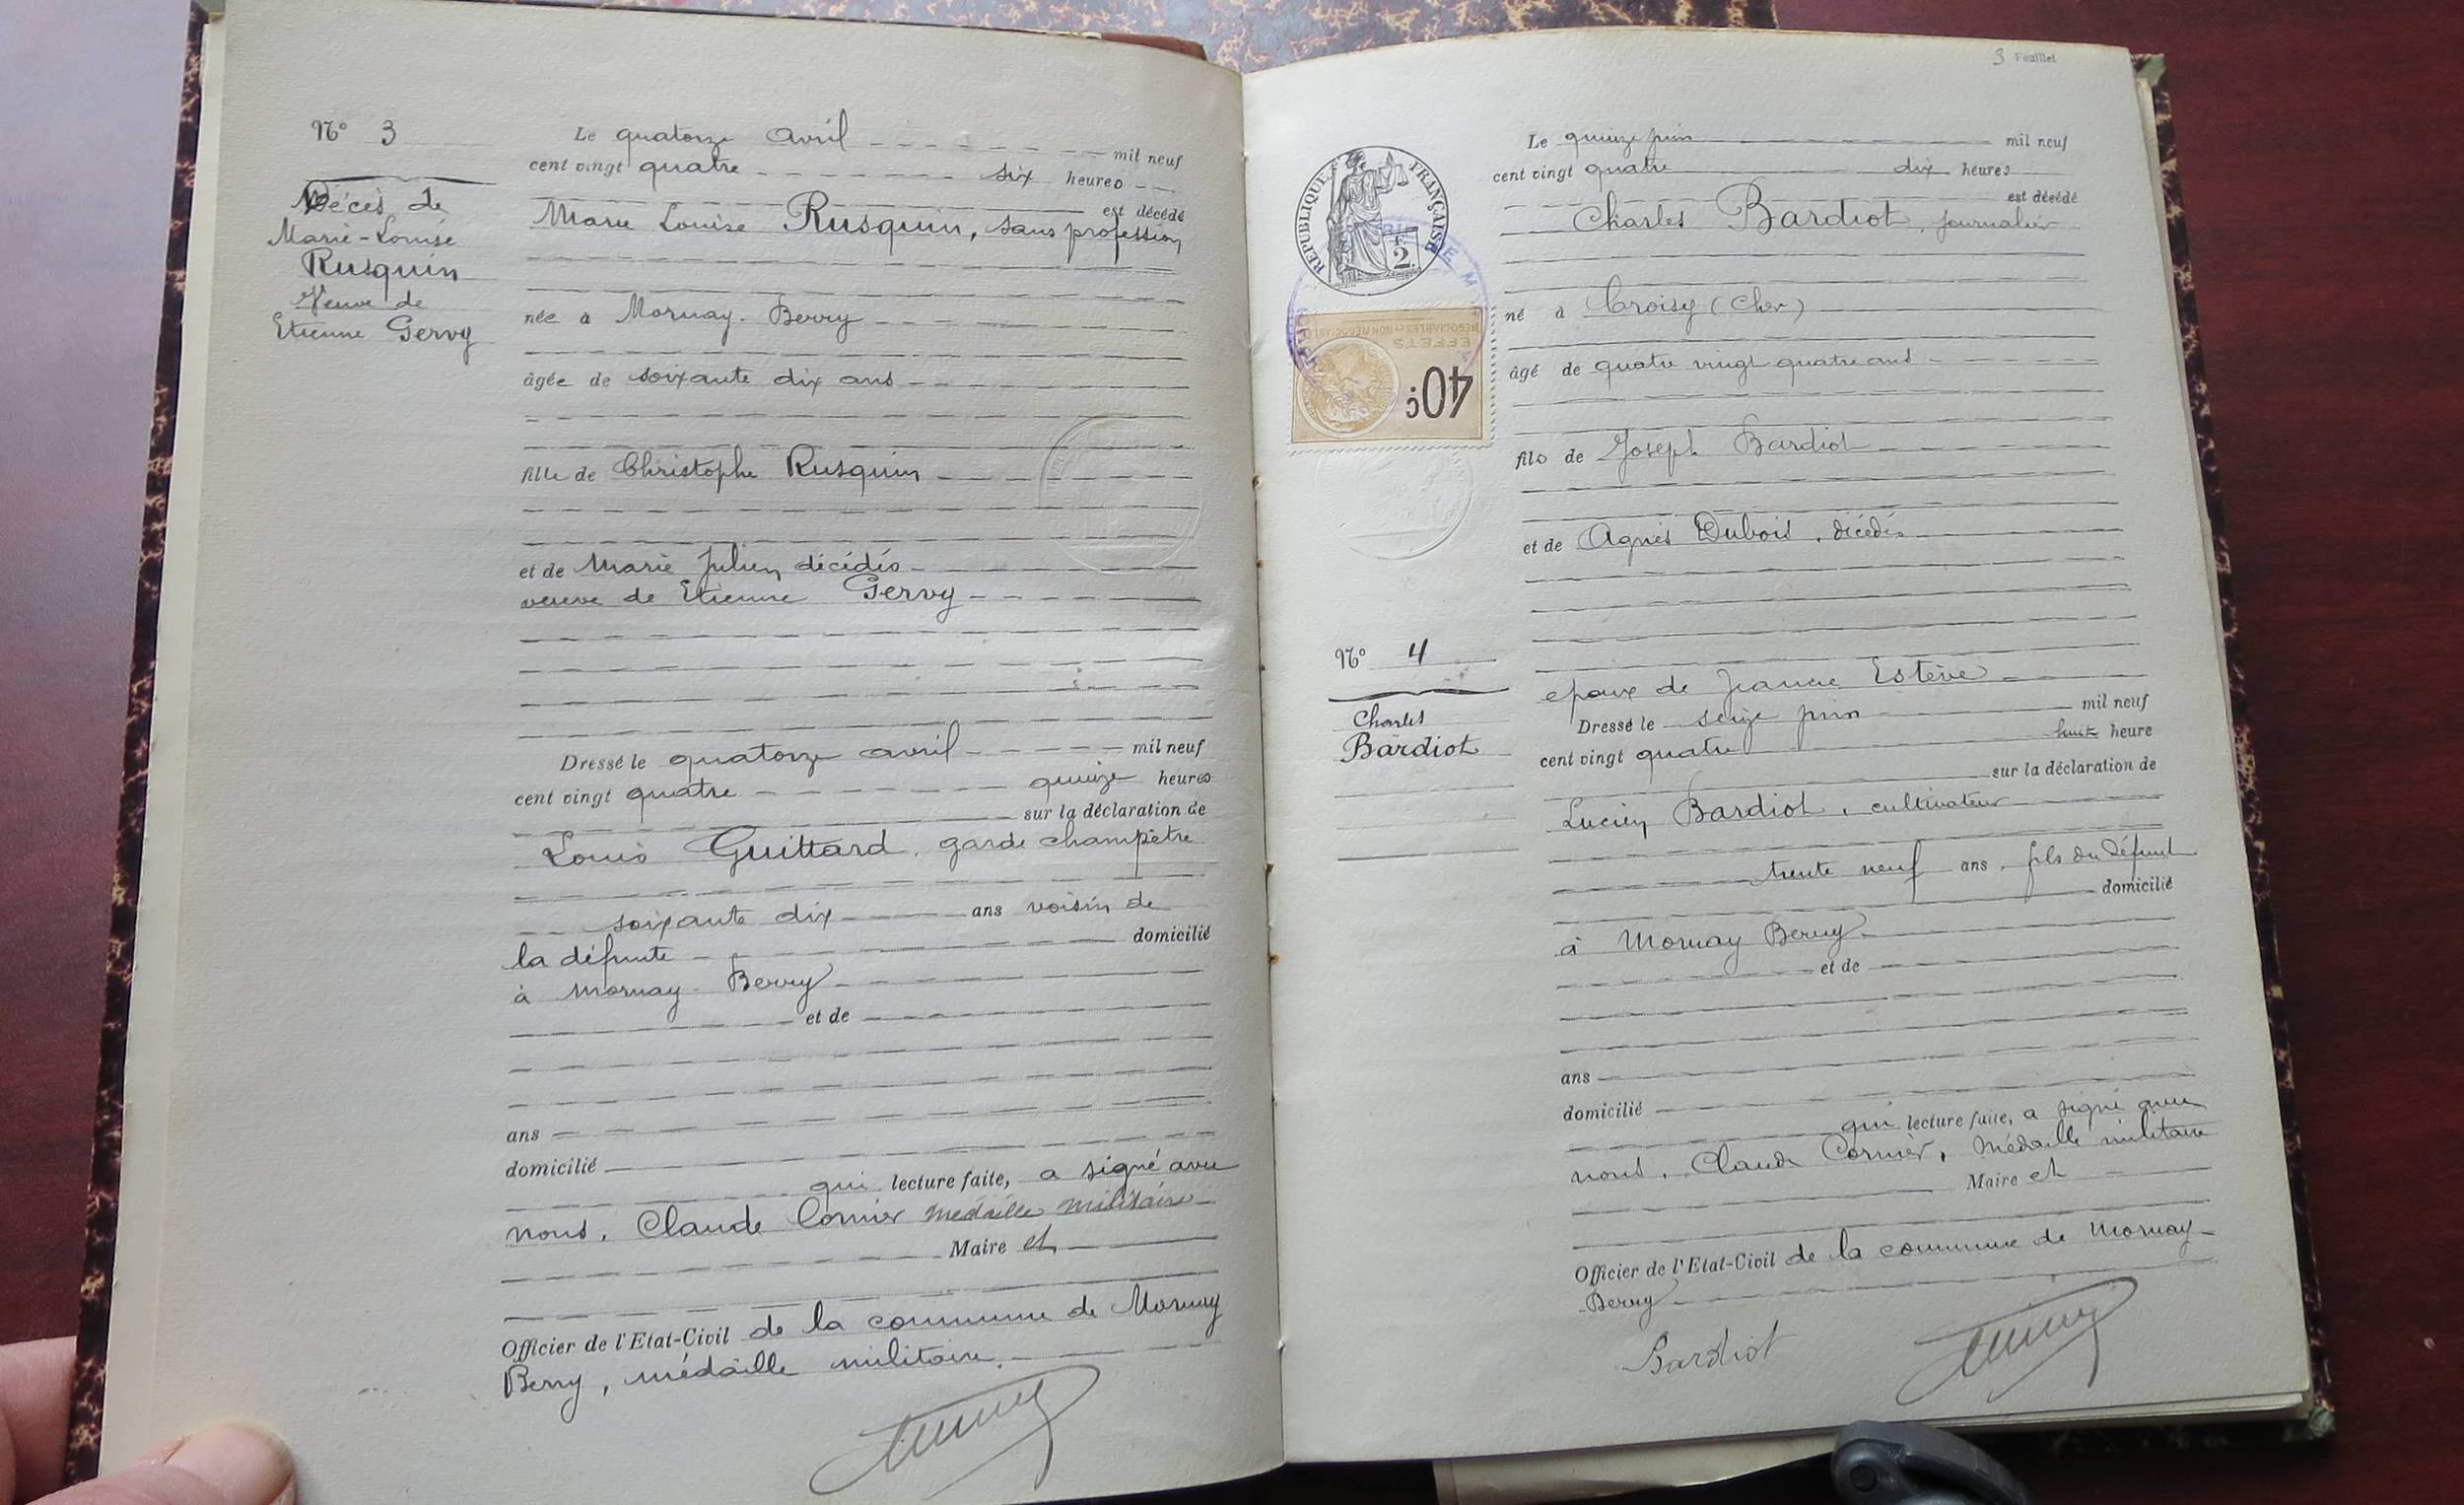 N° 3
Décès de
Marie-Louise
Rusquin
Veuve de
Etienne Gervy
Le quatorze avril mil neuf
cent vingt quatre six heures
est décédé
Marie Louise Rusquin, sans profession
née à Mornay-Berry
âgée de soixante dix ans
fille de Christophe Rusquin
et de Marie Julien décédés
veuve de Etienne Gervy
Dressé le quatorze avril mil neuf
cent vingt quatre quinze heures
sur la déclaration de
Louis Guittard, garde champêtre
soixante dix ans voisin de
la défunte domicilié
à Mornay-Berry
et de
ans
domicilié
qui lecture faite, a signé avec
nous, Claude Cornier médaille militaire
Maire et
Officier de l'Etat-Civil de la commune de Mornay
Berry, médaille militaire.
3 Feuillet
RÉPUBLIQUE FRANÇAISE
2
EFFETS
NÉGOCIABLES ET NON NÉGOCIABLES
40c
N° 4
Charles
Bardiot
Le quinze juin mil neuf
cent vingt quatre dix heures
est décédé
Charles Bardiot, journalier
né à Croisy (Cher)
âgé de quatre vingt quatre ans
fils de Joseph Bardiot
et de Agnès Dubois, décédés
époux de Jeanne Estève
Dressé le seize juin mil neuf
cent vingt quatre huit heure
sur la déclaration de
Lucien Bardiot, cultivateur
trente neuf ans, fils du défunt
domicilié
à Mornay Berry
et de
ans
domicilié
qui lecture faite, a signé avec
nous, Claude Cornier, Médaille militaire
Maire et
Officier de l'Etat-Civil de la commune de Mornay-
Berry
Bardiot